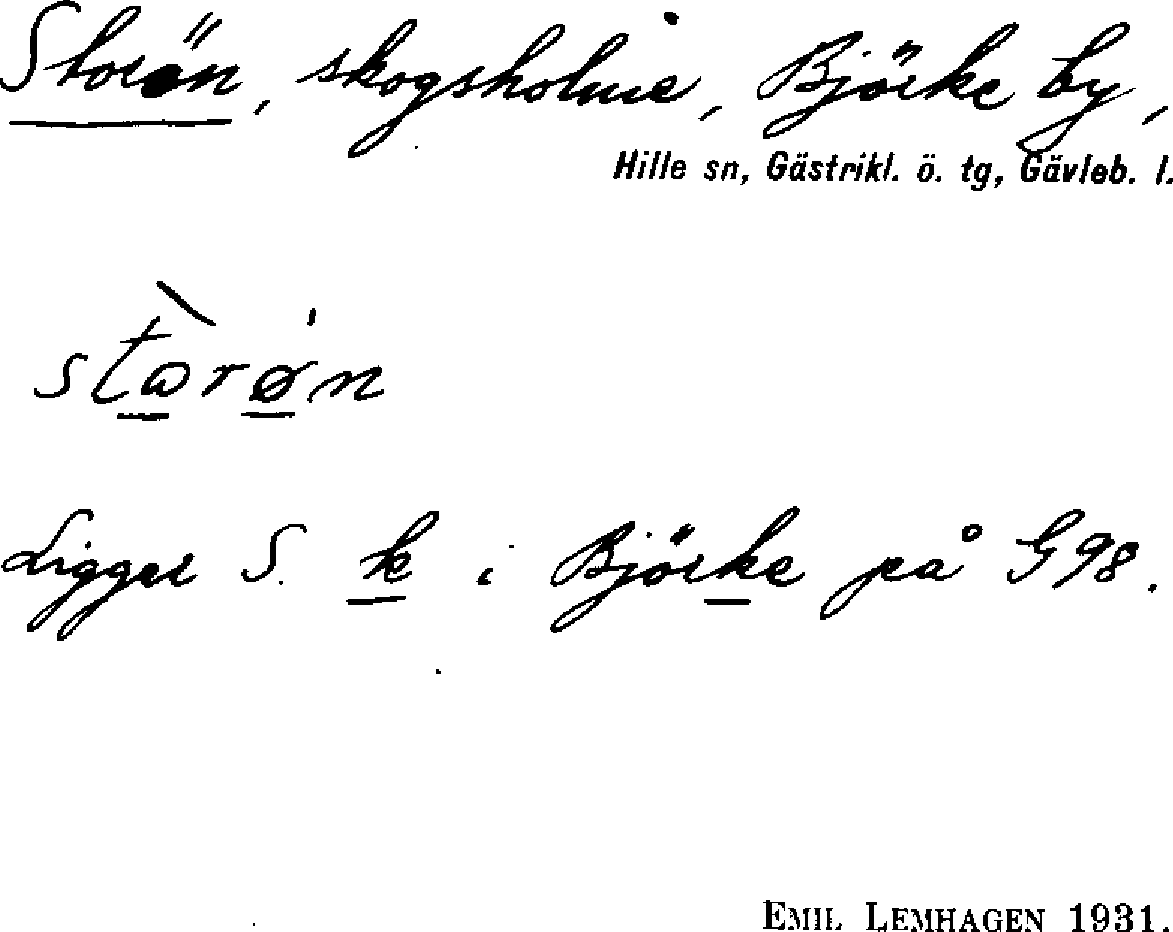 Storön, skogsholme, Björke by,
Hille sn, Gästrikl. ö. tg, Gävleb. l.
stɷ̀rø̍n
Ligger S. k i Björke på G98.
EMIL LEMHAGEN 1931.